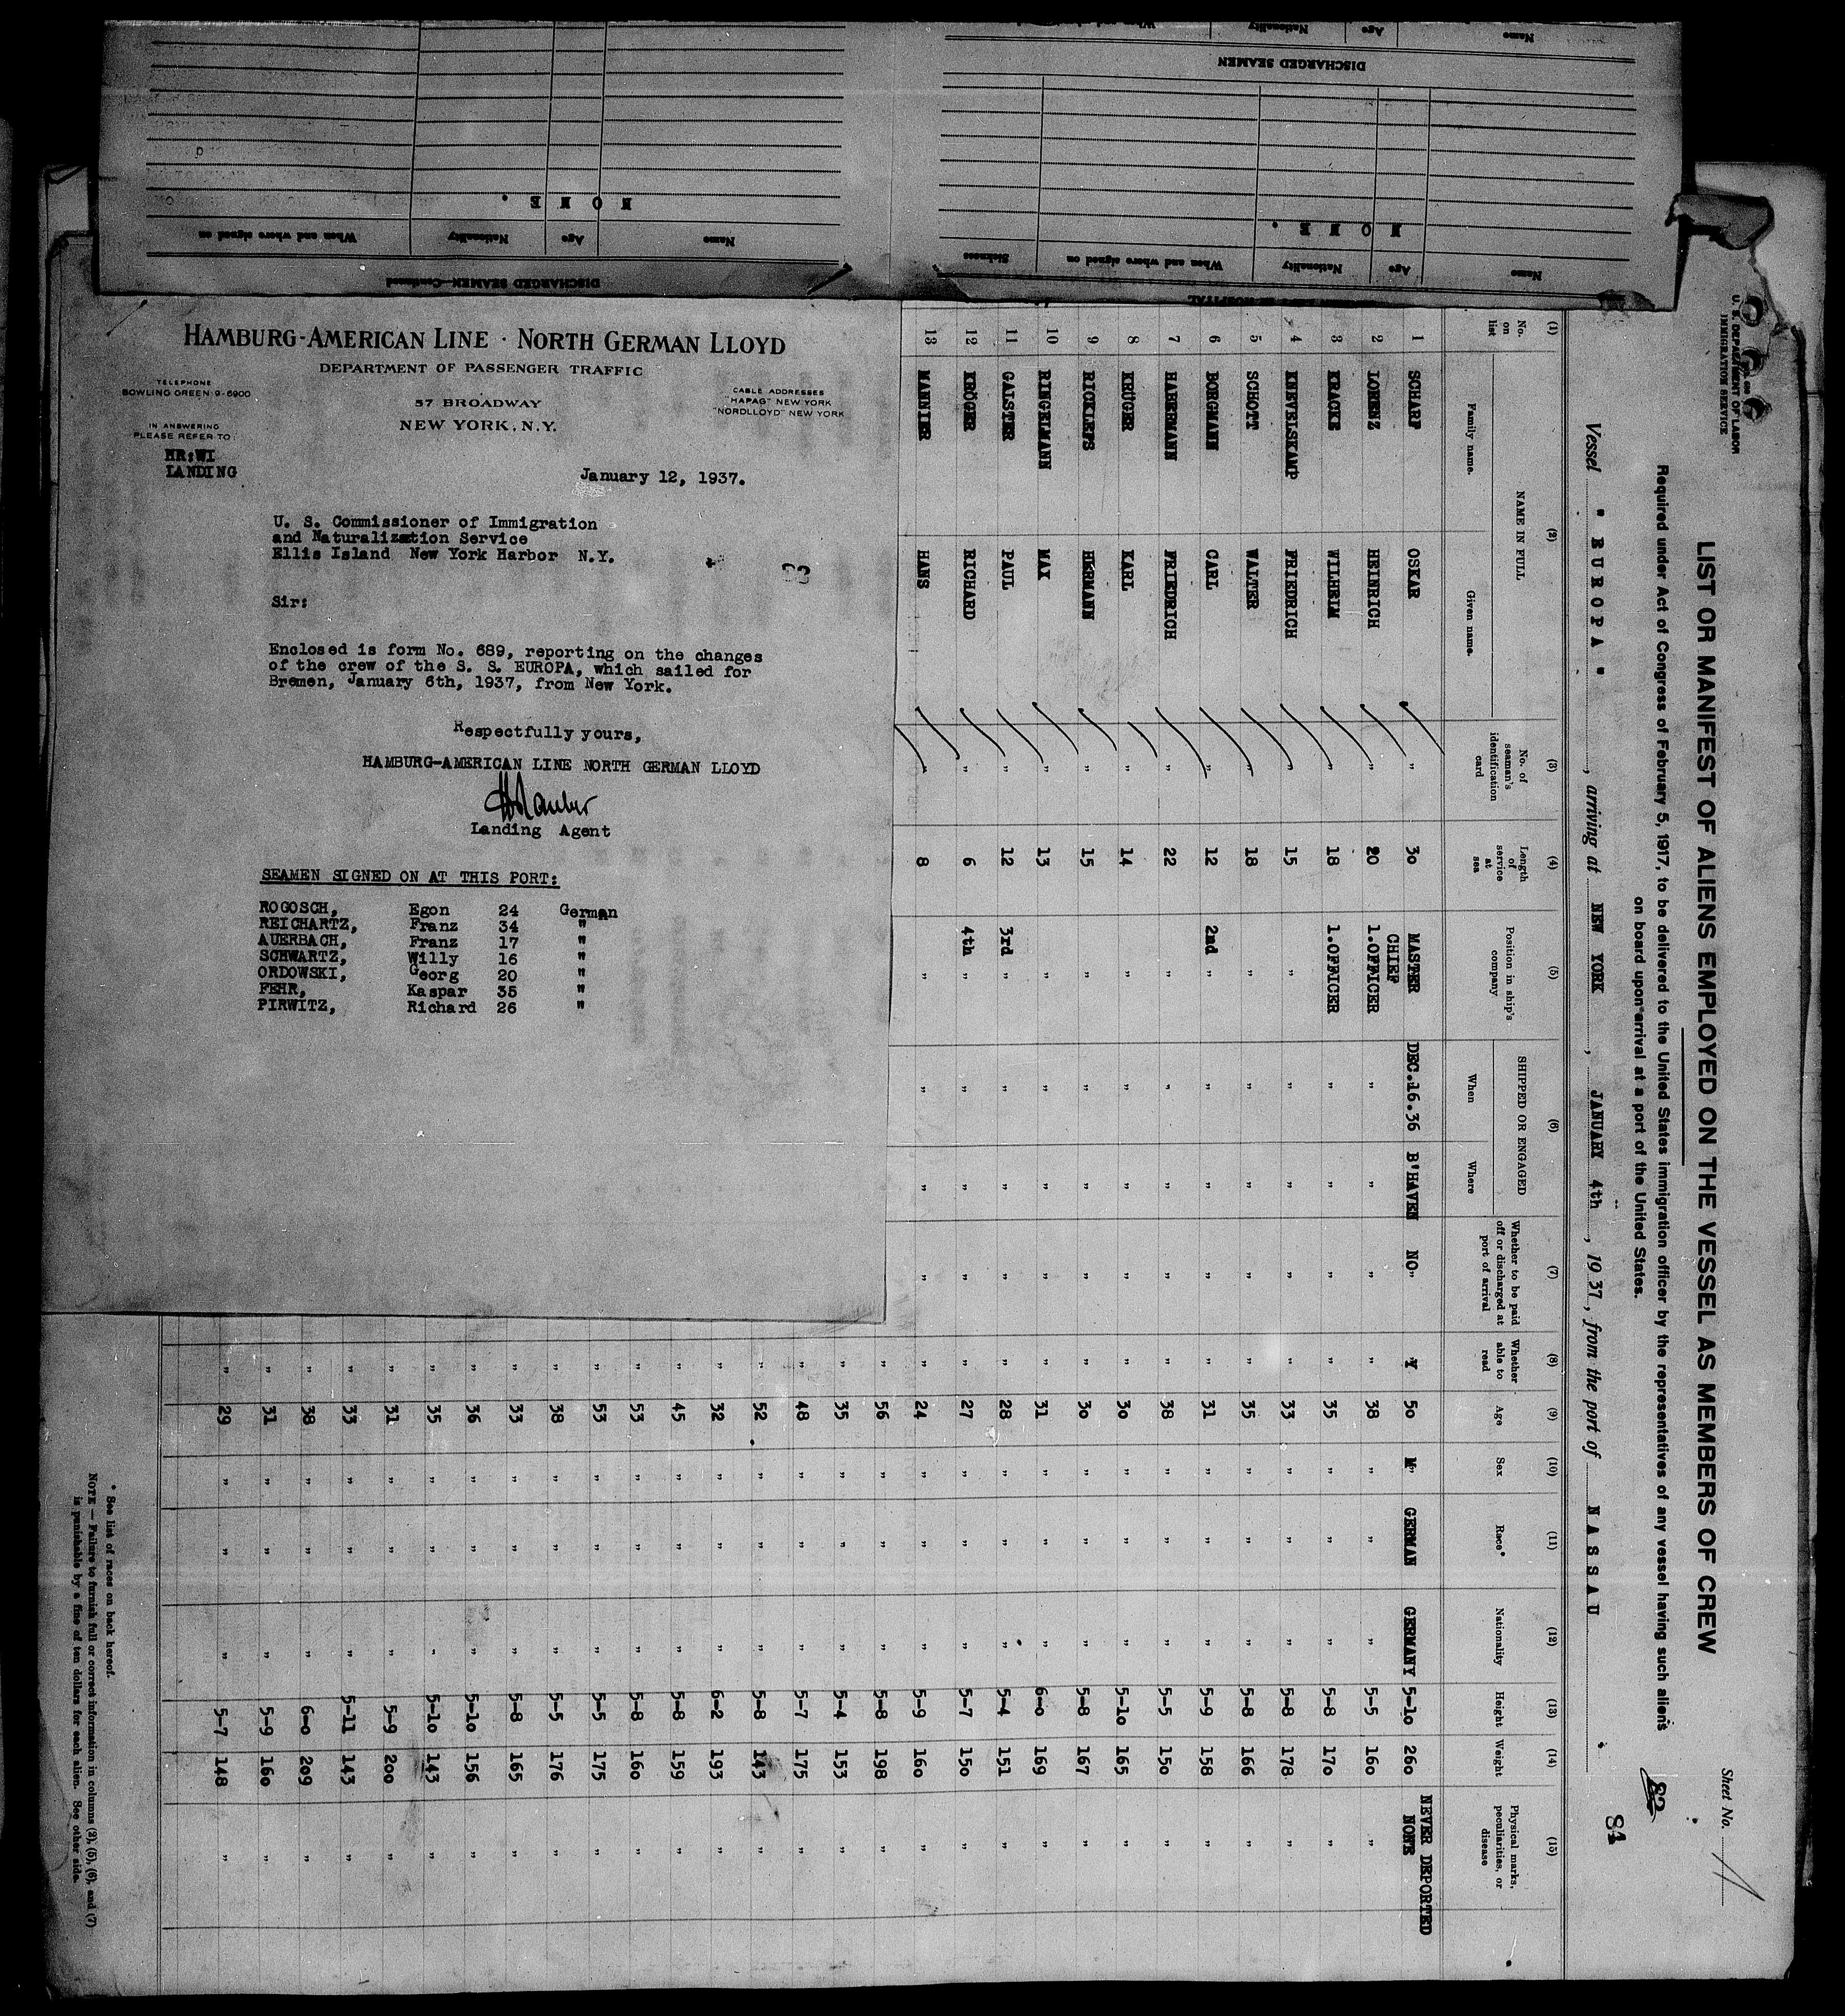 Name
Age
Nationality
DISCHARGED SEAMEN
NONE.
Name
Age
Nationality
When and where signed on
Sickness
NONE.
Name
Age
Nationality
When and where signed on
DISCHARGED SEAMEN—Continued
HAMBURG-AMERICAN LINE · NORTH GERMAN LLOYD
DEPARTMENT OF PASSENGER TRAFFIC
TELEPHONE
BOWLING GREEN 9-6900
57 BROADWAY
NEW YORK, N.Y.
CABLE ADDRESSES
"HAPAG" NEW YORK
"NORDLLOYD" NEW YORK
IN ANSWERING
PLEASE REFER TO
HR:WI
LANDING
January 12, 1937.
U. S. Commissioner of Immigration
and Naturalization Service
Ellis Island New York Harbor N.Y.
Sir:
Enclosed is form No. 689, reporting on the changes
of the crew of the S. S. EUROPA, which sailed for
Bremen, January 6th, 1937, from New York.
Respectfully yours,
HAMBURG-AMERICAN LINE NORTH GERMAN LLOYD
Landing Agent
SEAMEN SIGNED ON AT THIS PORT:
ROGOSCH, Egon 24 German
REICHARTZ, Franz 34 "
AUERBACH, Franz 17 "
SCHWARTZ, Willy 16 "
ORDOWSKI, Georg 20 "
FEHR, Kaspar 35 "
PIRWITZ, Richard 26 "
U. S. DEPARTMENT OF LABOR
IMMIGRATION SERVICE
Sheet No. 1
LIST OR MANIFEST OF ALIENS EMPLOYED ON THE VESSEL AS MEMBERS OF CREW
82
Required under Act of Congress of February 5, 1917, to be delivered to the United States immigration officer by the representatives of any vessel having such aliens
on board upon arrival at a port of the United States.
84
Vessel "EUROPA", arriving at NEW YORK, JANUARY 4th, 1937, from the port of NASSAU
(1) (2) (3) (4) (5) (6) (7) (8) (9) (10) (11) (12) (13) (14) (15)
No. on list
NAME IN FULL
Family name. Given name.
No. of seaman's identification card
Length of service at sea
Position in ship's company
SHIPPED OR ENGAGED
When Where
Whether to be paid off or discharged at port of arrival
Whether able to read
Age
Sex
Race*
Nationality
Height
Weight
Physical marks, peculiarities, or disease
1 SCHARF OSKAR " 30 MASTER DEC.16.36 B'HAVEN NO" Y 50 M" GERMAN GERMANY 5-10 260 NEVER DEPORTED NONE
2 LORENZ HEINRICH " 20 CHIEF 1.OFFICER " " " " 38 " " " 5-5 160 "
3 KRACKE WILHELM " 18 1.OFFICER " " " " 35 " " " 5-8 170 "
4 KNEVELSKAMP FRIEDRICH " 15 " " " " " 33 " " " 5-8 178 "
5 SCHOTT WALTER " 18 " " " " " 35 " " " 5-8 166 "
6 BORGMANN CARL " 12 2nd " " " " " 31 " " " 5-9 158 "
7 HABERMANN FRIEDRICH " 22 " " " " " 38 " " " 5-5 150 "
8 KRÜGER KARL " 14 " " " " " 30 " " " 5-10 165 "
9 RICKLEFS HERMANN " 15 " " " " " 30 " " " 5-8 167 "
10 RINGELMANN MAX " 13 " " " " " 31 " " " 6-0 169 "
11 GALSTER PAUL " 12 3rd " " " " " 28 " " " 5-4 151 "
12 KRÖGER RICHARD " 6 4th " " " " " 27 " " " 5-7 150 "
13 MANNIER HANS " 8 " " " " " 24 " " " 5-9 160 "
" 56 " " " 5-8 198 "
" 35 " " " 5-4 153 "
" 48 " " " 5-7 175 "
" 52 " " " 5-8 143 "
" 32 " " " 6-2 193 "
" 45 " " " 5-8 159 "
" 53 " " " 5-8 160 "
" 53 " " " 5-5 175 "
" 38 " " " 5-5 176 "
" 33 " " " 5-8 165 "
" 36 " " " 5-10 156 "
" 35 " " " 5-10 143 "
" 31 " " " 5-9 200 "
" 33 " " " 5-11 143 "
" 38 " " " 6-0 209 "
" 31 " " " 5-9 160 "
" 29 " " " 5-7 148 "
* See list of races on back hereof.
NOTE — Failure to furnish full or correct information in columns (2), (5), (6), and (7)
is punishable by a fine of ten dollars for each alien. See other side.